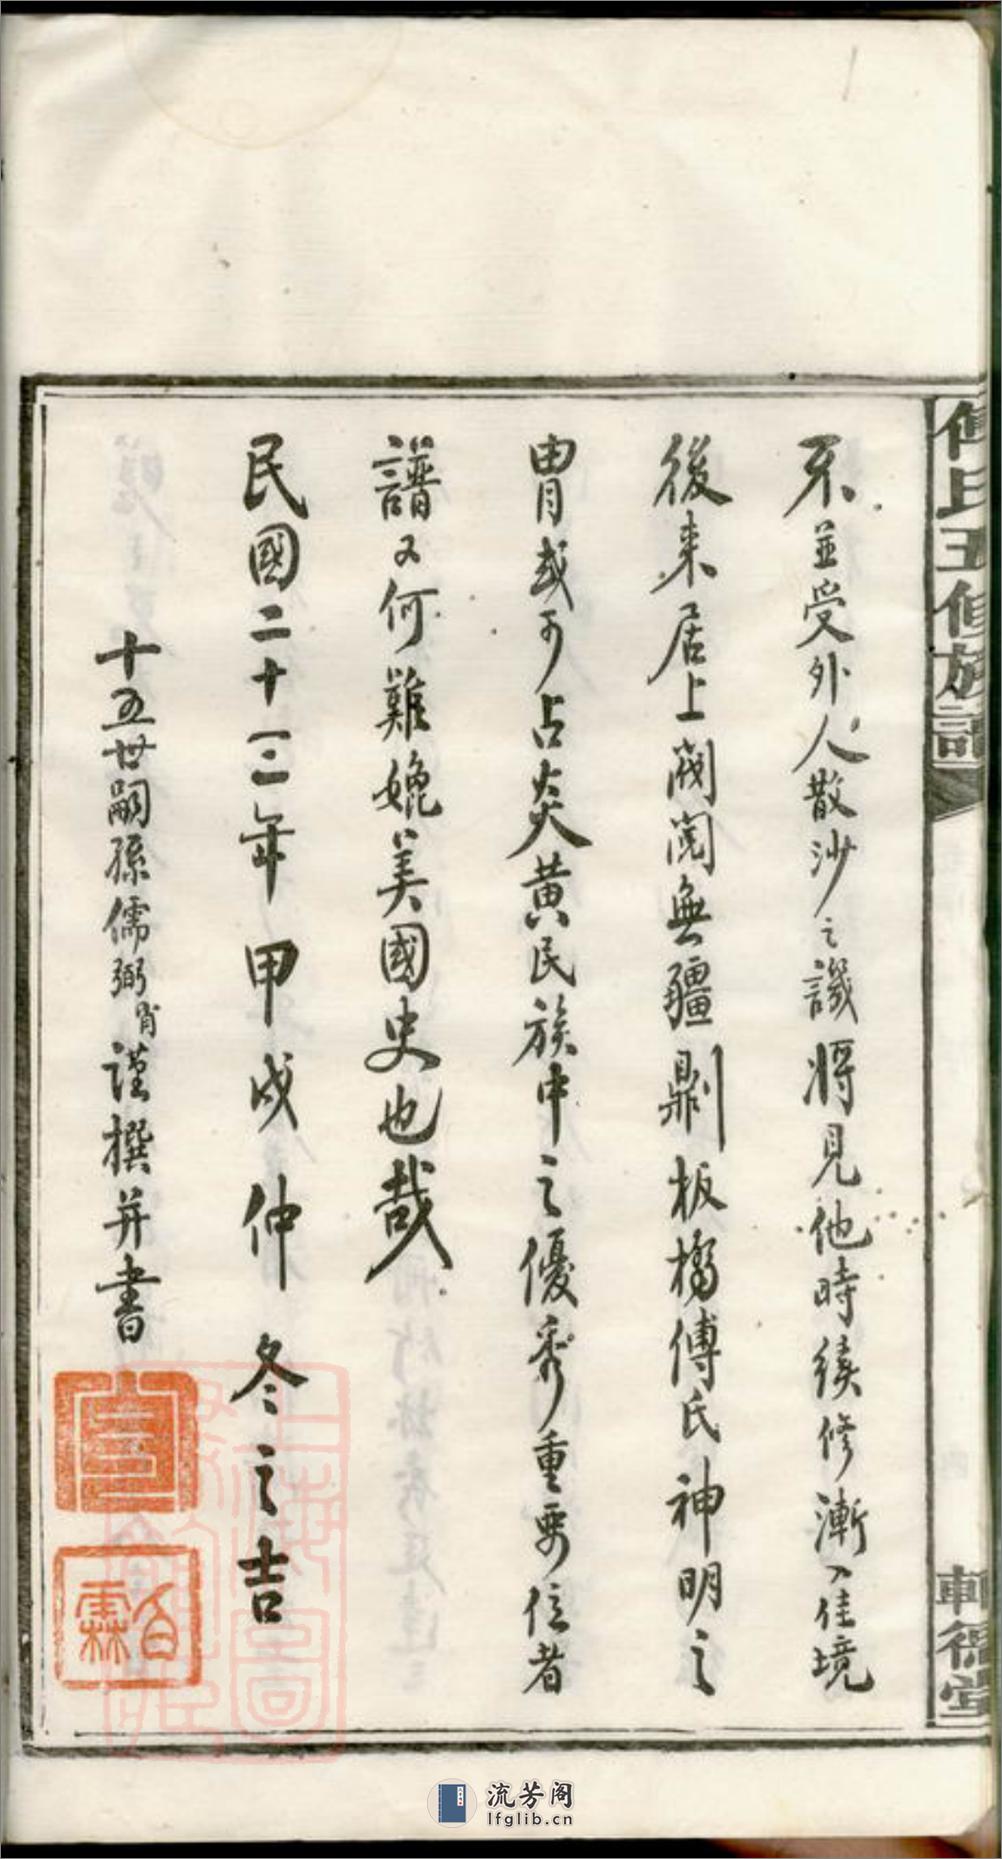 傅氏五修族譜
不並受外人散沙之譏將見他時續修漸入佳境
後来居上閥閱無疆剿板橋傅氏神明之
胄或可占炎黄民族中之優秀重要位者
譜又何難媲美國史也哉
民國二十三年甲戌仲冬之吉
十五世嗣孫儒弼謹撰并書
流芳阁
lfglib.cn